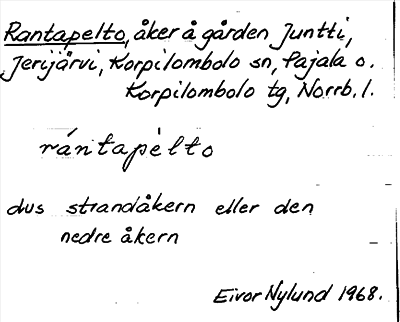 Rantapelto, åker å gården Juntti,
Jerijärvi, Korpilombolo sn, Pajala o.
Korpilombolo tg, Norrb. l.
rántapèlto
dvs strandåkern eller den
nedre åkern
Eivor Nylund 1968.